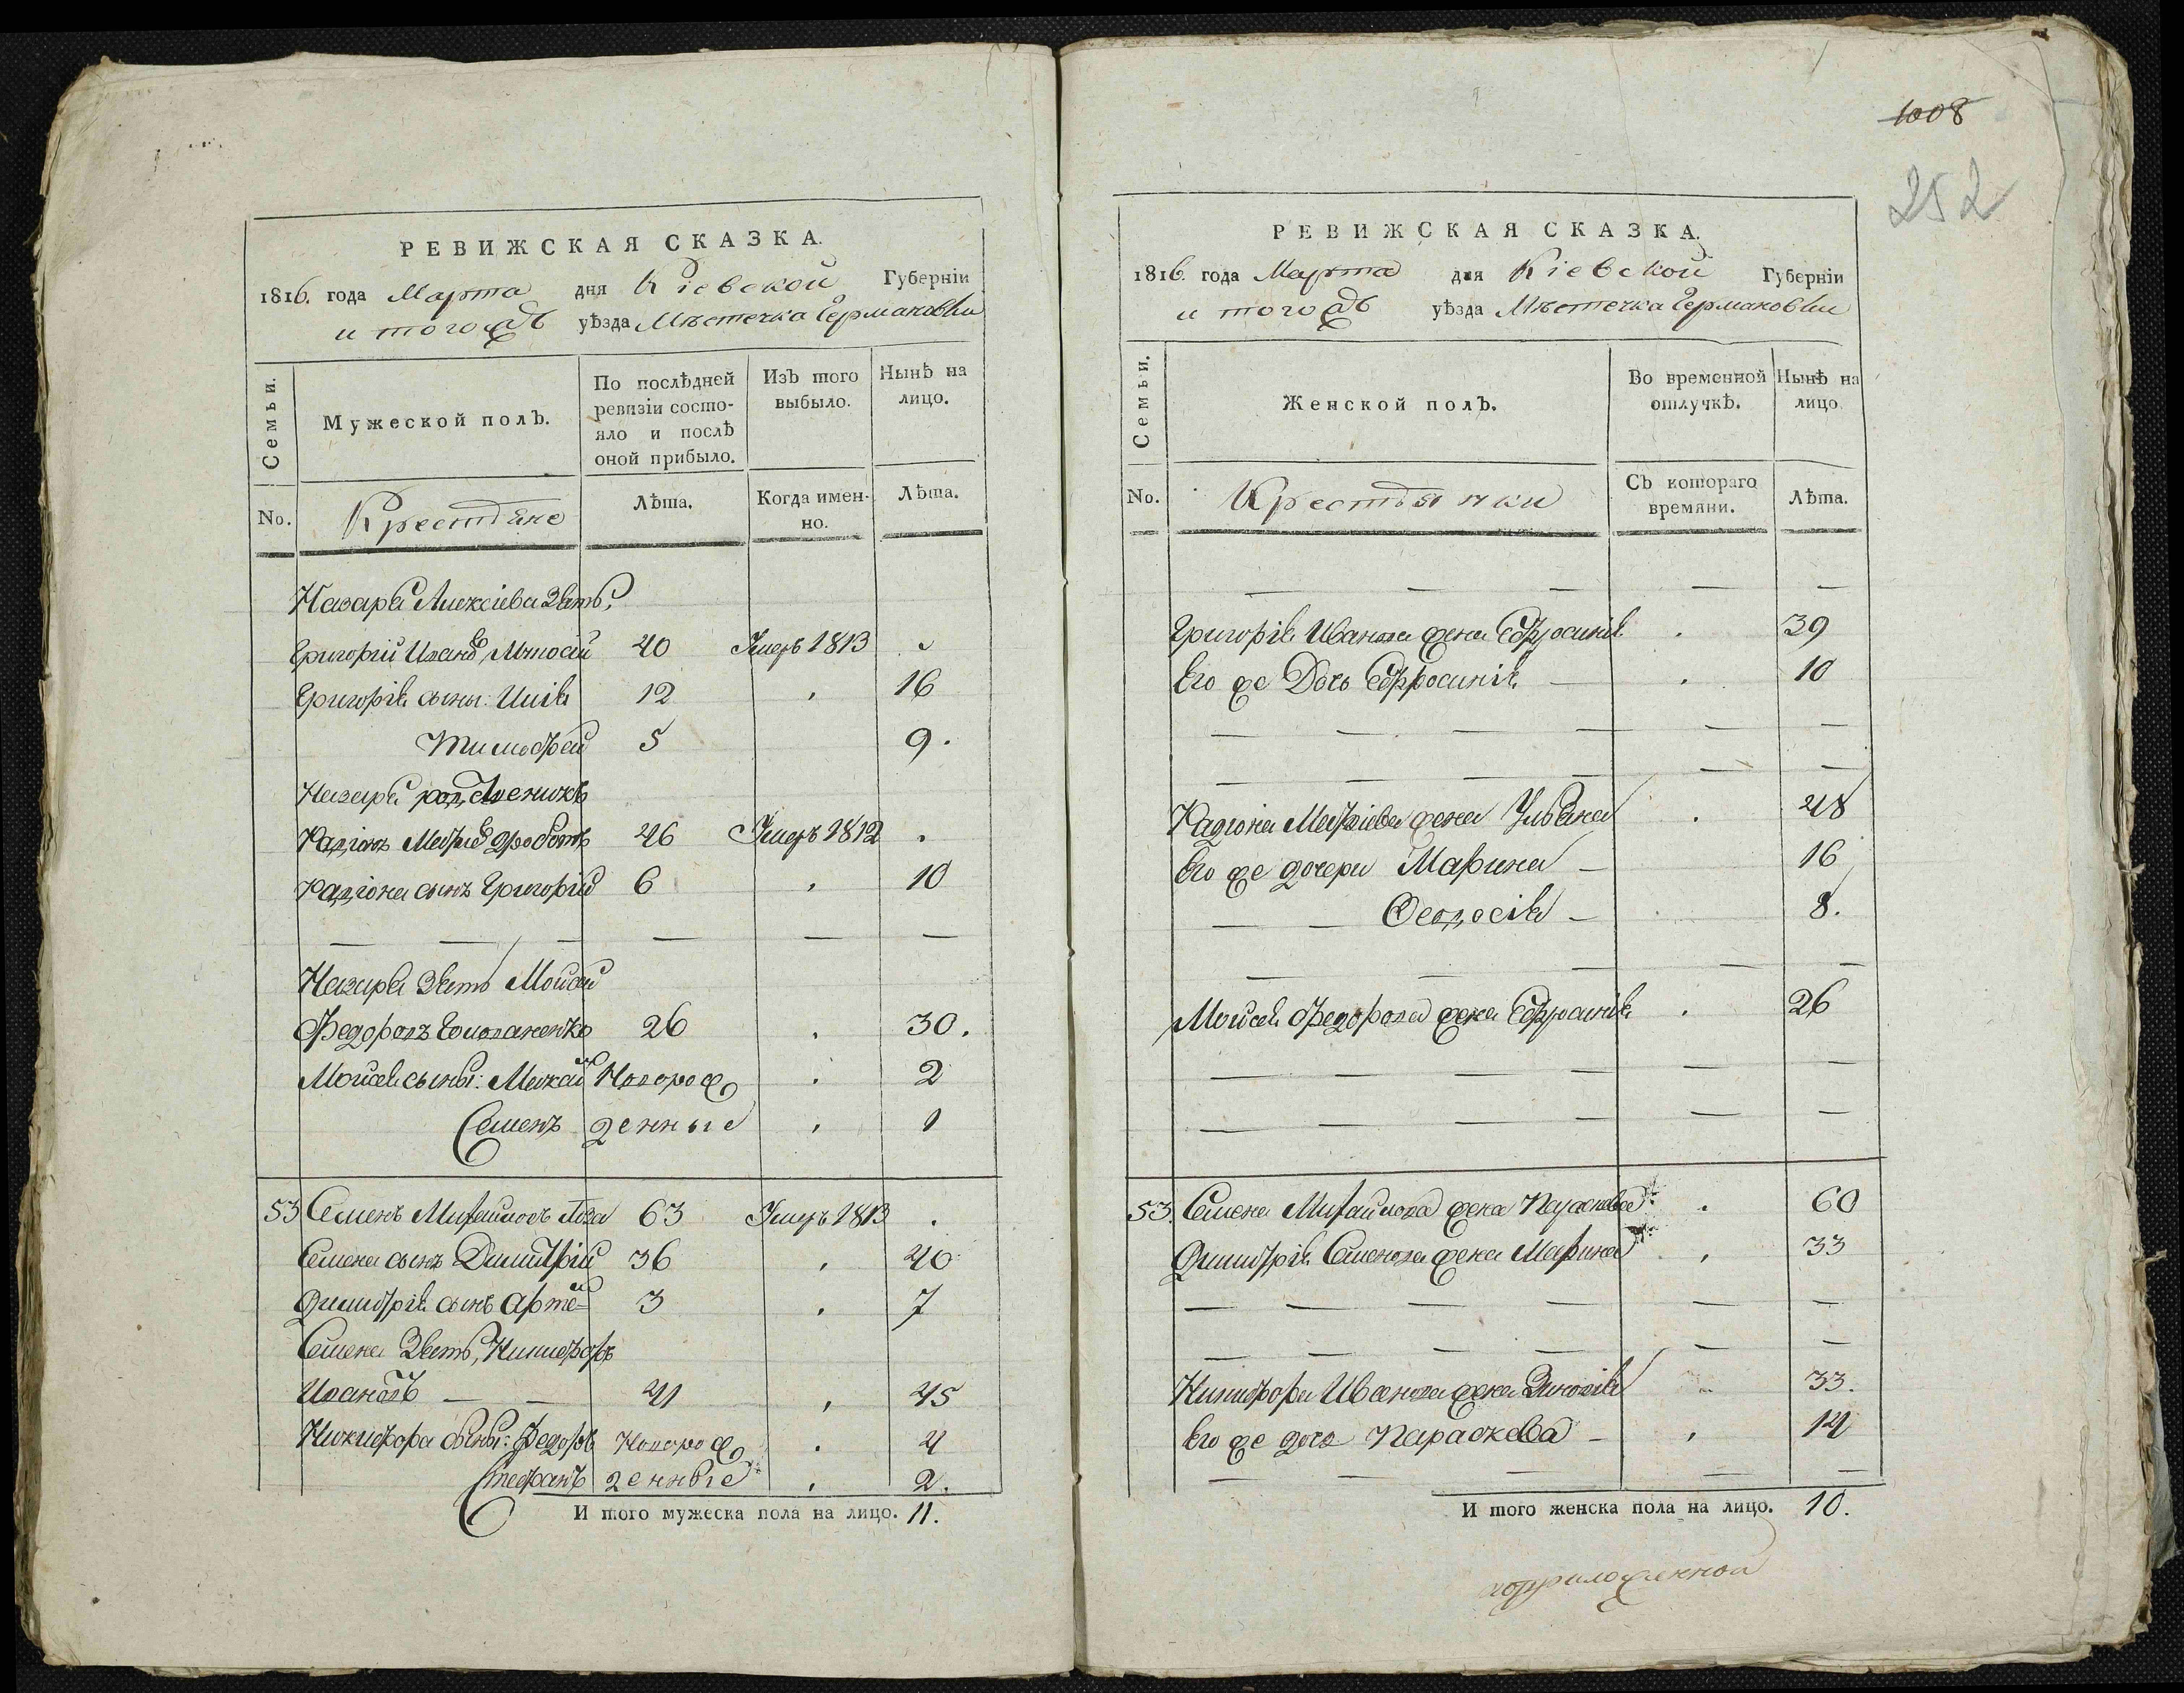 РЕВИЖСКАЯ СКАЗКА.
1816. года Марта дня Кіевской Губерніи
и тогожъ уѣзда Мѣстечка Германовки
Семьи.
Мужеской полъ.
По послѣдней ревизіи состояло и послѣ оной прибыло.
Изъ того выбыло.
Нынѣ на лицо.
No.
Крестьяне
Лѣта.
Когда именно.
Лѣта.
Назара Алексіева Зять,
Григорій Ивановъ 40 Умеръ 1813
Григорія сыны: Илія 12 16
Тимофей 5 9.
Назара родственикъ
Радіонъ 46 Умеръ 1812
Радіона сынъ Григорій 6 10
Назара Зять Мойсей
Федоровъ 26 30.
Мойсея сыны: Новорож 2
Семенъ денные 1
53 Семенъ Михайловъ 63 Умеръ 1813
Семена сынъ Димитрій 36 40
Димитрія сынъ Артемій 3 7
Семена Зять, Никифоръ
Ивановъ 41 45
Никифора сыны: Федоръ Новорож 4
Стефанъ денные 2.
И того мужеска пола на лицо. 11.
1008
252
РЕВИЖСКАЯ СКАЗКА.
1816. года Марта дня Кіевской Губерніи
и тогожъ уѣзда Мѣстечка Германовки
Семьи.
Женской полъ.
Во временной отлучкѣ.
Нынѣ на лицо.
No.
Крестьянки
Съ котораго времяни.
Лѣта.
Григорія Иванова жена Ефросинія 39
Его же Дочь Ефросинія 10
Радіона жена Ульяна 48
Его же дочери Марина 16
Феодосія 8.
Мойсея Федорова жена Ефросинія 26
53. Семена Михайлова жена Параскева 60
Димитрія Семенова жена Марина 33
Никифора Иванова жена Зиновія 33.
Его же дочь Параскева 14
И того женска пола на лицо. 10.